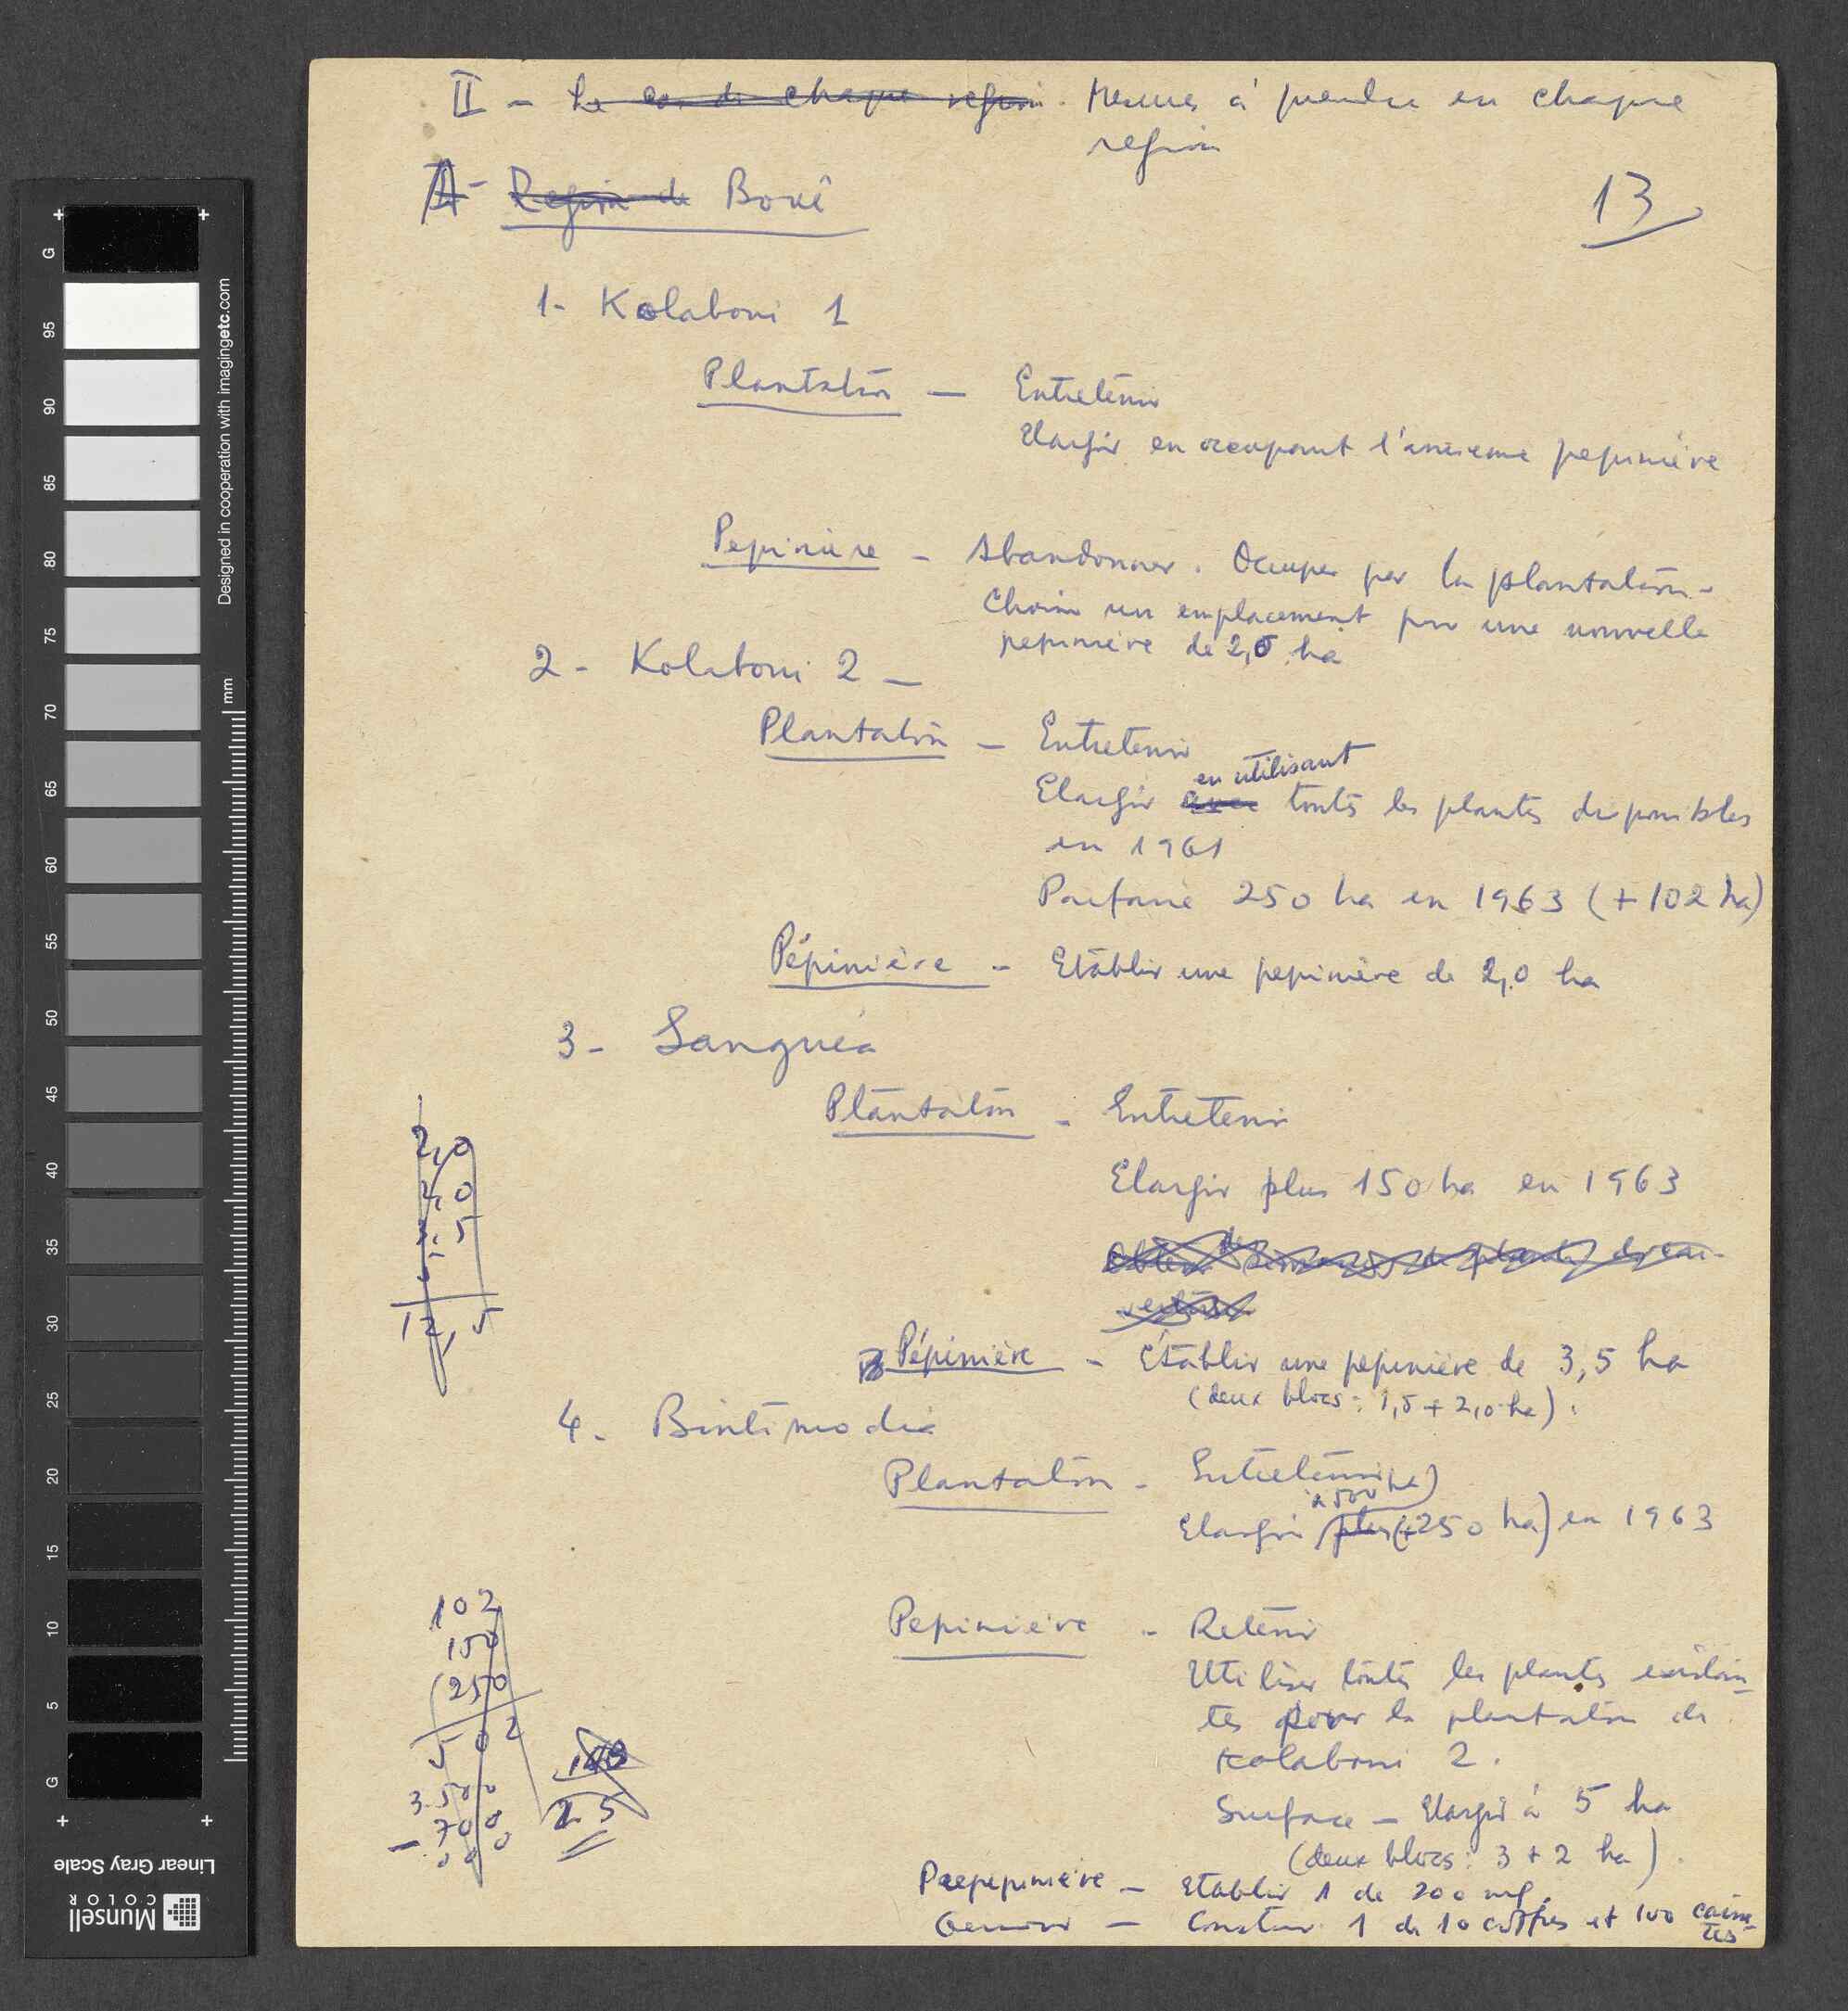 II - Le cas de chaque region. Mesures à prendre en chaque
region
A - Region de Boké
13
1- Kolaboni 1
Plantation — Entretenir
Elargir en occupant l'ancienne pepinière
Pepinière - Abandonner. Occuper par la plantation.
Choisir un emplacement pour une nouvelle
pepinière de 2,0 ha
2 - Kolaboni 2 -
Plantation - Entretenir
en utilisant
Elargir avec toutes les plantes disponibles
en 1961
Parfaire 250 ha en 1963 (+102 ha)
Pépinière - Etablir une pepinière de 2,0 ha
3 - Sanguéa
Plantation - Entretenir
Elargir plus 150 ha en 1963
Pépinière - Etablir une pepinière de 3,5 ha
(deux blocs: 1,5 + 2,0 ha).
4 - Bintimodia
Plantation - Entretenir
(à 500 ha)
Elargir plus (+250 ha) en 1963
Pepinière - Retenir
Utiliser toutes les plantes existan-
tes pour la plantation de
Kolaboni 2.
Surface - Elargir à 5 ha
(deux blocs: 3 + 2 ha).
Prepepinière - Etablir 1 de 200 m².
Germoir - Construir 1 de 10 coffres et 100 caiset-
tes
2,0
2,0
3,5
12,5
102
150
250
502
3.500
700
25